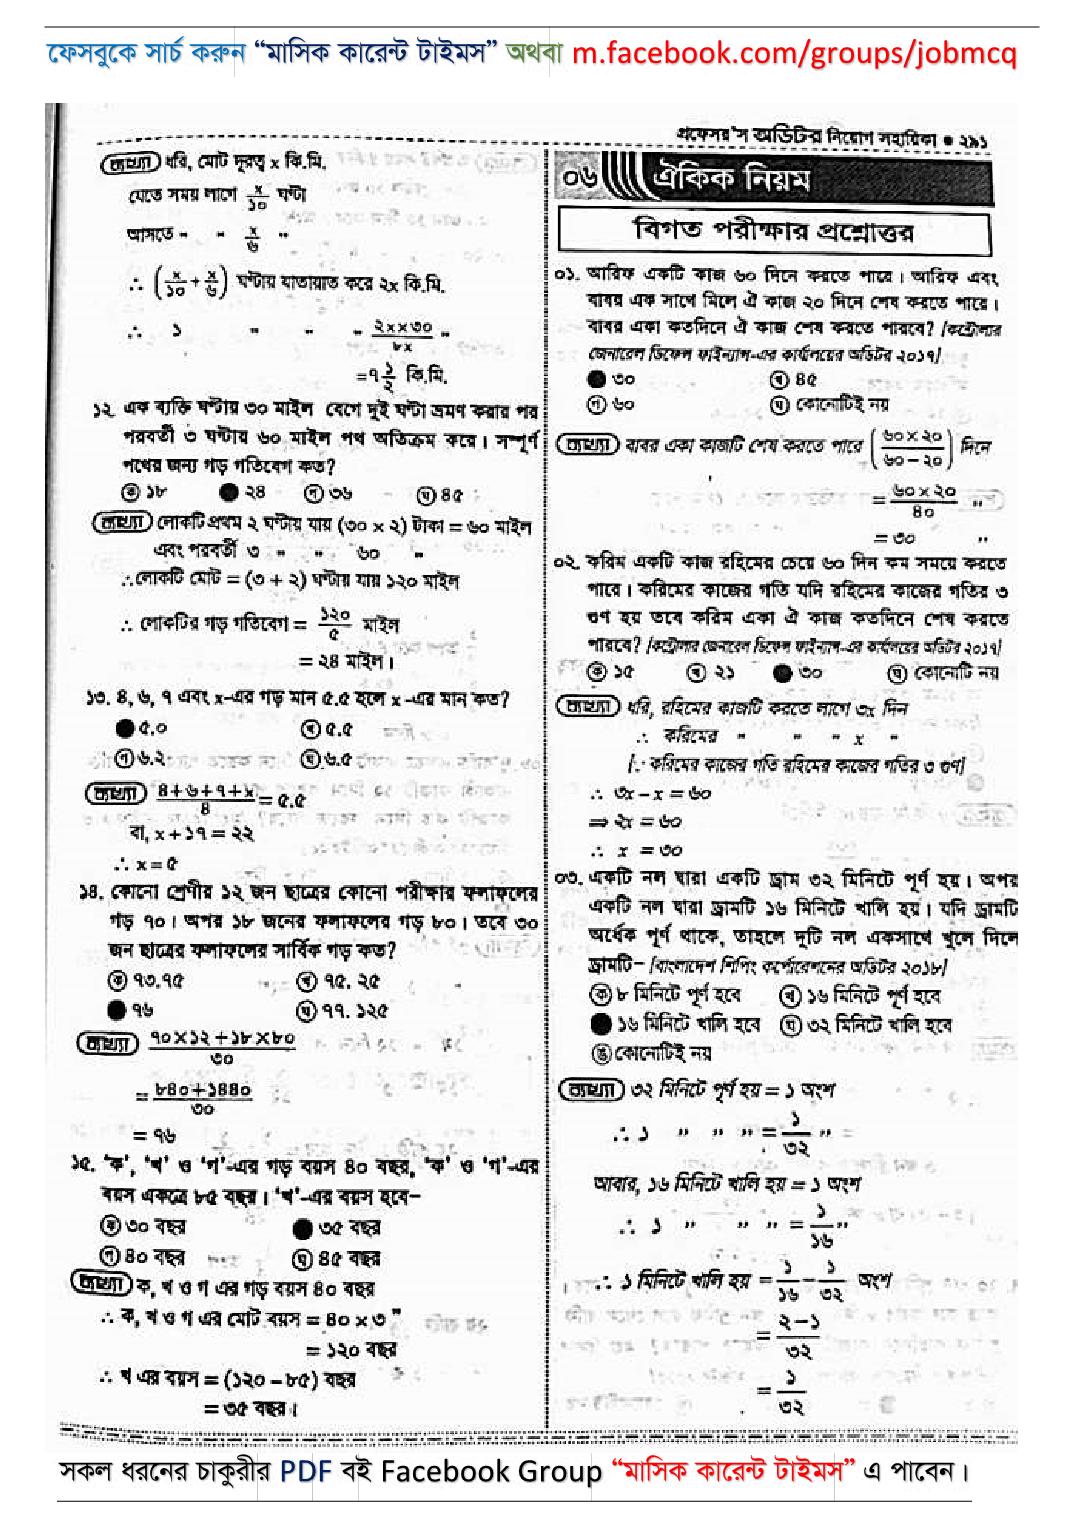 ফেসবুকে সার্চ করুন “মাসিক কারেন্ট টাইমস” অথবা m.facebook.com/groups/jobmcq
প্রফেসর'স অডিটর নিয়োগ সহায়িকা ● ২৯১
ব্যাখ্যা ধরি, মোট দূরত্ব x কি.মি.
যেতে সময় লাগে x/১০ ঘণ্টা
আসতে " " x/৬ "
∴ (x/১০ + x/৬) ঘণ্টায় যাতায়াত করে ২x কি.মি.
∴ ১ " " " ২x×৩০/৮x "
=৭ ১/২ কি.মি.
১২. এক ব্যক্তি ঘণ্টায় ৩০ মাইল বেগে দুই ঘণ্টা ভ্রমণ করার পর
পরবর্তী ৩ ঘণ্টায় ৬০ মাইল পথ অতিক্রম করে। সম্পূর্ণ
পথের জন্য গড় গতিবেগ কত?
ⓚ ১৮ ● ২৪ গ ৩৬ ঘ ৪৫
ব্যাখ্যা লোকটি প্রথম ২ ঘণ্টায় যায় (৩০ × ২) টাকা = ৬০ মাইল
এবং পরবর্তী ৩ " " ৬০ "
∴লোকটি মোট = (৩ + ২) ঘণ্টায় যায় ১২০ মাইল
∴ লোকটির গড় গতিবেগ = ১২০/৫ মাইল
= ২৪ মাইল।
১৩. ৪, ৬, ৭ এবং x-এর গড় মান ৫.৫ হলে x -এর মান কত?
● ৫.০ খ ৫.৫
গ ৬.২ ঘ ৬.৫
ব্যাখ্যা ৪+৬+৭+x/৪ = ৫.৫
বা, x + ১৭ = ২২
∴ x = ৫
১৪. কোনো শ্রেণীর ১২ জন ছাত্রের কোনো পরীক্ষার ফলাফলের
গড় ৭০। অপর ১৮ জনের ফলাফলের গড় ৮০। তবে ৩০
জন ছাত্রের ফলাফলের সার্বিক গড় কত?
ক ৭৩.৭৫ খ ৭৫. ২৫
● ৭৬ ঘ ৭৭. ১২৫
ব্যাখ্যা ৭০×১২+১৮×৮০/৩০
= ৮৪০+১৪৪০/৩০
= ৭৬
১৫. ‘ক’, ‘খ’ ও ‘গ’-এর গড় বয়স ৪০ বছর, ‘ক’ ও ‘গ’-এর
বয়স একত্রে ৮৫ বছর। ‘খ’-এর বয়স হবে–
ক ৩০ বছর ● ৩৫ বছর
গ ৪০ বছর ঘ ৪৫ বছর
ব্যাখ্যা ক, খ ও গ এর গড় বয়স ৪০ বছর
∴ ক, খ ও গ এর মোট বয়স = ৪০ × ৩ "
= ১২০ বছর
∴ খ এর বয়স = (১২০ – ৮৫) বছর
= ৩৫ বছর।
০৬ ঐকিক নিয়ম
বিগত পরীক্ষার প্রশ্নোত্তর
০১. আরিফ একটি কাজ ৬০ দিনে করতে পারে। আরিফ এবং
বাবর এক সাথে মিলে ঐ কাজ ২০ দিনে শেষ করতে পারে।
বাবর একা কতদিনে ঐ কাজ শেষ করতে পারবে? [কন্ট্রোলার
জেনারেল ডিফেন্স ফাইন্যান্স-এর কার্যালয়ের অডিটর ২০১৭]
● ৩০ খ ৪৫
গ ৬০ ঘ কোনোটিই নয়
ব্যাখ্যা বাবর একা কাজটি শেষ করতে পারে (৬০×২০/৬০–২০) দিনে
= ৬০×২০/৪০ "
= ৩০ "
০২. করিম একটি কাজ রহিমের চেয়ে ৬০ দিন কম সময়ে করতে
পারে। করিমের কাজের গতি যদি রহিমের কাজের গতির ৩
গুণ হয় তবে করিম একা ঐ কাজ কতদিনে শেষ করতে
পারবে? [কন্ট্রোলার জেনারেল ডিফেন্স ফাইন্যান্স-এর কার্যালয়ের অডিটর ২০১৭]
ক ১৫ খ ২১ ● ৩০ ঘ কোনোটি নয়
ব্যাখ্যা ধরি, রহিমের কাজটি করতে লাগে ৩x দিন
∴ করিমের " " " x "
[∵ করিমের কাজের গতি রহিমের কাজের গতির ৩ গুণ]
∴ ৩x – x = ৬০
⇒ ২x = ৬০
∴ x = ৩০
০৩. একটি নল দ্বারা একটি ড্রাম ৩২ মিনিটে পূর্ণ হয়। অপর
একটি নল দ্বারা ড্রামটি ১৬ মিনিটে খালি হয়। যদি ড্রামটি
অর্ধেক পূর্ণ থাকে, তাহলে দুটি নল একসাথে খুলে দিলে
ড্রামটি– [বাংলাদেশ শিপিং কর্পোরেশনের অডিটর ২০১৮]
ক ৮ মিনিটে পূর্ণ হবে খ ১৬ মিনিটে পূর্ণ হবে
● ১৬ মিনিটে খালি হবে ঘ ৩২ মিনিটে খালি হবে
ঙ কোনোটিই নয়
ব্যাখ্যা ৩২ মিনিটে পূর্ণ হয় = ১ অংশ
∴ ১ " " " = ১/৩২ "
আবার, ১৬ মিনিটে খালি হয় = ১ অংশ
∴ ১ " " " = ১/১৬ "
∴ ১ মিনিটে খালি হয় = ১/১৬ – ১/৩২ অংশ
= ২–১/৩২
= ১/৩২
সকল ধরনের চাকুরীর PDF বই Facebook Group “মাসিক কারেন্ট টাইমস” এ পাবেন।